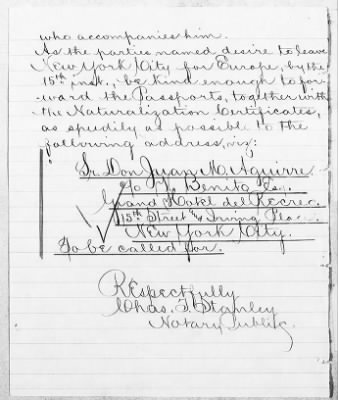 who accompanies him.
As the parties named desire to leave
New York City for Europe, by the
15th inst., be kind enough to for-
ward the Passports, together with
the Naturalization Certificates,
as speedily as possible to the
following address, viz:
Sr. Don Juan M. Aguirre.
c/o Y. Benito Esq.
Grand Hotel del Recreo
15th Street & Irving Place
New York City.
To be called for.
Respectfully
Chas. F. Stanley
Notary Public.